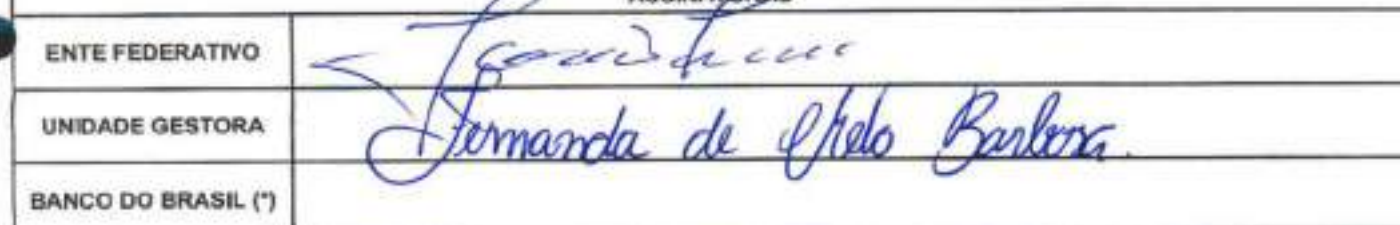 ENTE FEDERATIVO
UNIDADE GESTORA Fernanda de Melo Barbosa.
BANCO DO BRASIL (*)